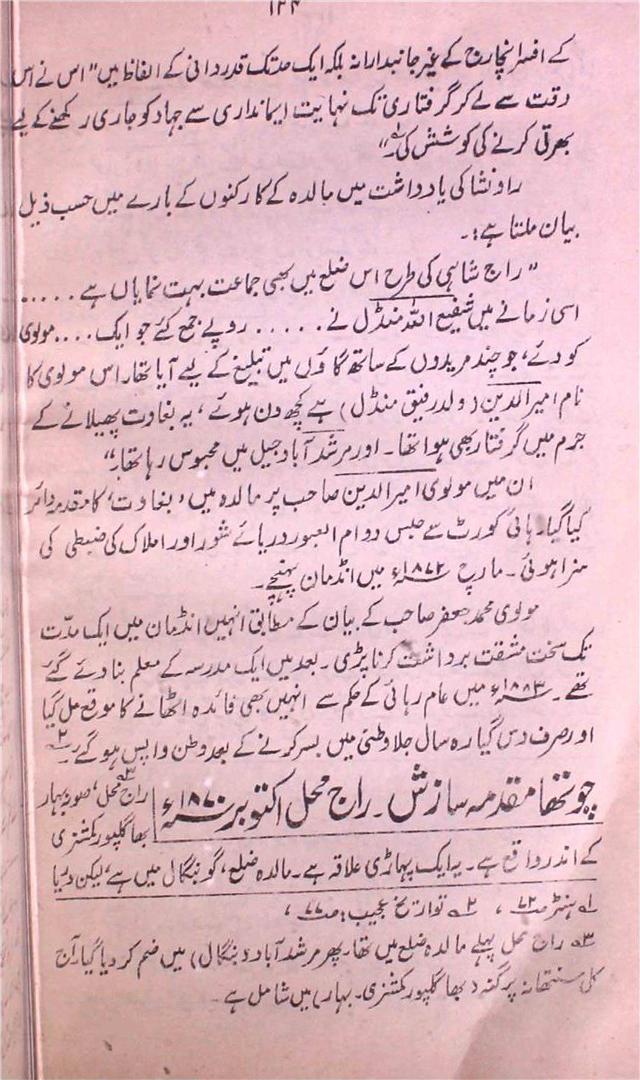 ۱۲۴
کے افسر انچارج کے غیر جانبدارانہ بلکہ ایک حد تک قدردانی کے الفاظ ہیں" اس نے اس
وقت سے لے کر گرفتاری تک نہایت ایمانداری سے جہاد کو جاری رکھنے کے لیے
بھرتی کرنے کی کوشش کی۔"
راونشا کی یادداشت میں مالدہ کے کارکنوں کے بارے میں حسب ذیل
بیان ملتا ہے:۔
"راج شاہی کی طرح اس ضلع میں بھی جماعت بہت نمایاں ہے .....
اسی زمانے میں شفیع اللہ منڈل نے ..... روپے جمع کئے جو ایک .... مولوی
کو دئے، جو چند مریدوں کے ساتھ گاؤں میں تبلیغ کے لیے آیا تھا، اس مولوی کا
نام امیر الدین (ولد رفیق منڈل) ہے کچھ دن ہوئے، یہ بغاوت پھیلانے کے
جرم میں گرفتار بھی ہوا تھا۔ اور مرشد آباد جیل میں محبوس رہا تھا۔"
ان میں مولوی امیر الدین صاحب پر مالدہ میں 'بغاوت' کا مقدمہ دائر
کیا گیا۔ ہائی کورٹ سے حبس دوام بعبور دریائے شور اور املاک کی ضبطی کی
سزا ہوئی۔ مارچ ۱۸۷۲ء میں انڈمان پہنچے۔
مولوی محمد جعفر صاحب کے بیان کے مطابق انہیں انڈمان میں ایک مدّت
تک سخت مشقت برداشت کرنا پڑی۔ بعد میں ایک مدرسہ کے معلم بنا دئے گئے
تھے۔ ۱۸۸۳ء میں عام رہائی کے حکم سے انہیں بھی فائدہ اٹھانے کا موقع مل گیا
اور صرف دس گیارہ سال جلاوطنی میں بسر کرنے کے بعد وطن واپس ہو گئے۔۲
چوتھا مقدمہ سازش۔ راج محل اکتوبر ۱۸۷۰ء
راج محل۳، صوبہ بہار
بھاگلپور کمشنری
کے اندر واقع ہے۔ یہ ایک پہاڑی علاقہ ہے۔ مالدہ ضلع، گو بنگال میں ہے، لیکن دریا
۱ ہنٹر ص۷۲، ۲ تواریخ عجیب: ص۷۷،
۳ راج محل پہلے مالدہ ضلع میں تھا۔ پھر مرشد آباد (بنگال) میں ضم کر دیا گیا، آج
کل سنتھال پرگنہ (بھاگلپور کمشنری۔ بہار) میں شامل ہے۔